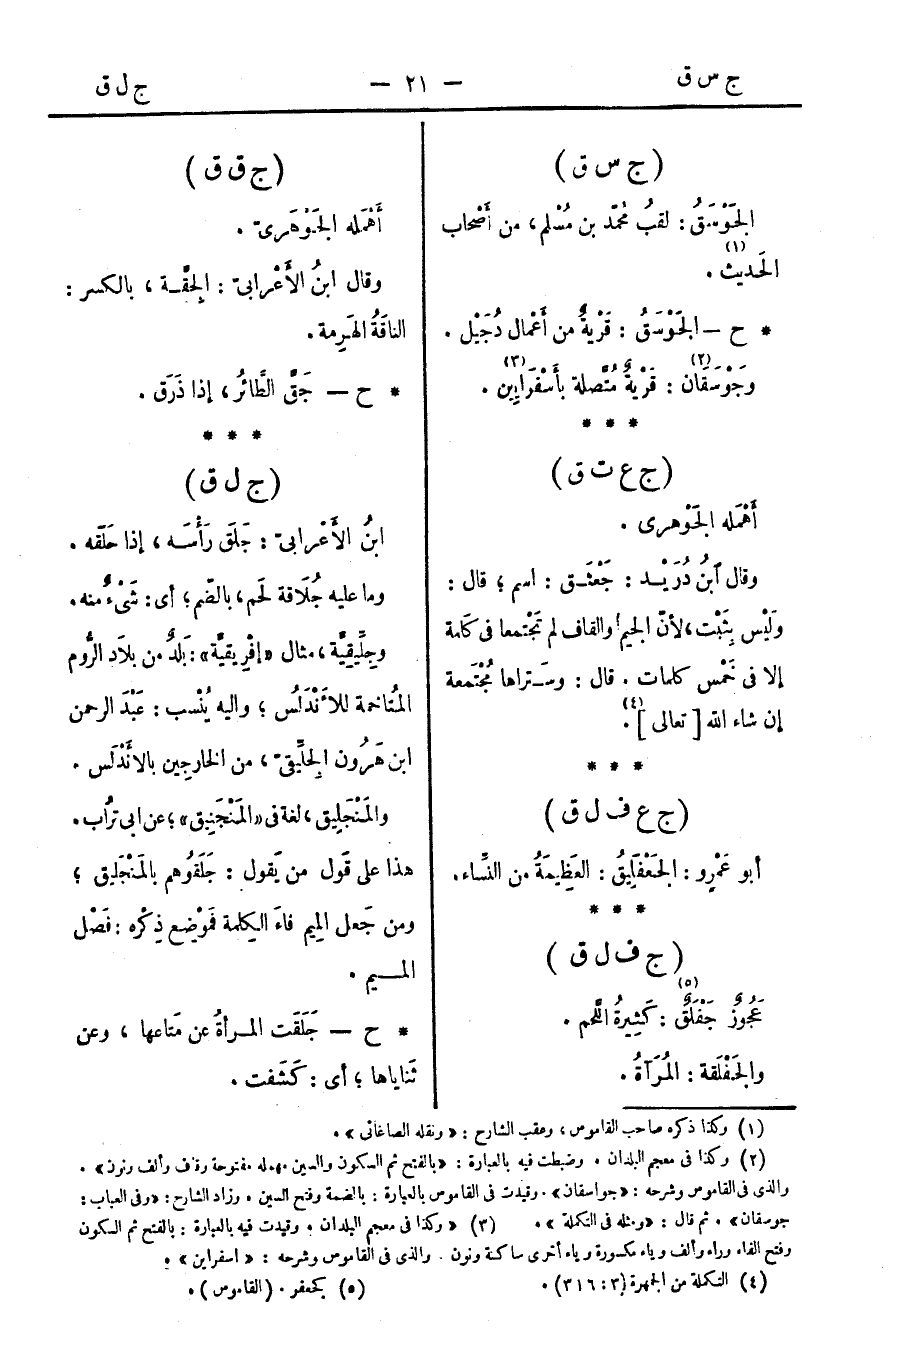 ج س ق — ٢١ — ج ل ق
(ج س ق)
الجَوْسَقُ : لقبُ مُحمّد بن مُسْلم، من أَصْحاب
الحَديث (١).
* ح — الجَوْسَقُ : قَرْيةٌ من أَعْمال دُجَيْل .
وجَوْسَقان (٢) : قَرْيةٌ مُتَّصلة بأَسْفَرَايِين (٣).
* * *
(ج ع ت ق)
أَهْمله الجَوْهرى .
وقال ابنُ دُرَيْـد : جَعْثَـق : اسم ؛ قال :
ولَيْس بِثَبْت، لأنّ الجيم والقاف لم تَجْتمعا فى كَلمة
إلا فى خَمْس كلمات . قال : وسَـتراها مُجْتَمعة
إن شاء الله [ تعالى ] (٤).
* * *
(ج ع ف ل ق)
أبو عَمْرٍو : الجَعْفَلِيقُ : العَظِيمَةُ من النِّساء.
* * *
(ج ف ل ق)
عَجُوزٌ جَفْلَقٌ (٥) : كَثِيرةُ اللَّحم .
والجَفْلَقة : المُرَآةُ .
(ج ق ق)
أَهْمَله الجَوْهَرىّ .
وقال ابنُ الأَعْرابىّ : الجِقَّـة ، بالكسر :
الناقَةُ الهَرِمة .
* ح — جَقَّ الطَّائرُ، إذا ذَرَق .
* * *
(ج ل ق)
ابنُ الأَعْرابىّ : جَلَق رَأْسَـه ، إذا حَلَقه .
وما عليه جُلَاقة لَحم، بالضّم؛ أى: شَىْءٌ منه.
وجِلِّيقِيَّة ، مثال «إفْرِيقيَّة» : بَلَدٌ من بلاد الرُّوم
المُتاخمة للأَنْدَلُس ؛ واليه يُنْسب : عَبْدُ الرحمن
ابن هَرُون الجِلِّيقىّ ، من الخارجين بالأَنْدَلُس .
والمَنْجَلِيق، لغة فى «المَنْجَنِيق» ؛ عن ابى تُراب.
هذا على قَول من يَقول : جَلَقُوهم بالمَنْجَلِيق ؛
ومن جَعل المِيم فاءَ الكِلمة فمَوْضِع ذِكْره : فَصْل
المـــيم .
* ح — جَلَقَت المـرأةُ عن مَتاعها ، وعن
ثَناياها ؛ أى : كَشَفت .
(١) وكذا ذكره صاحب القاموس ، وعقب الشارح : « ونقله الصاغانى » .
(٢) وكذا فى معجم البلدان . وضبطت فيه بالعبارة : «بالفتح ثم السكون والسين مهملة مفتوحة وقاف وألف ونون» .
والذى فى القاموس وشرحه : «جواسقان» . وقيدت فى القاموس بالعبارة : بالضمة وفتح السين . وزاد الشارح : «وفى العباب :
جوسقان» . ثم قال : «ومثله فى التكملة » . (٣) « وكذا فى معجم البلدان . وقيدت فيه بالعبارة : بالفتح ثم السكون
وفتح الفاء وراء وألف وياء مكسورة وياء أخرى ساكنة ونون . والذى فى القاموس وشرحه : « اسفراين » .
(٤) التكملة من الجمهرة (٣ : ٣١٦) . (٥) كجعفر . (القاموس) .